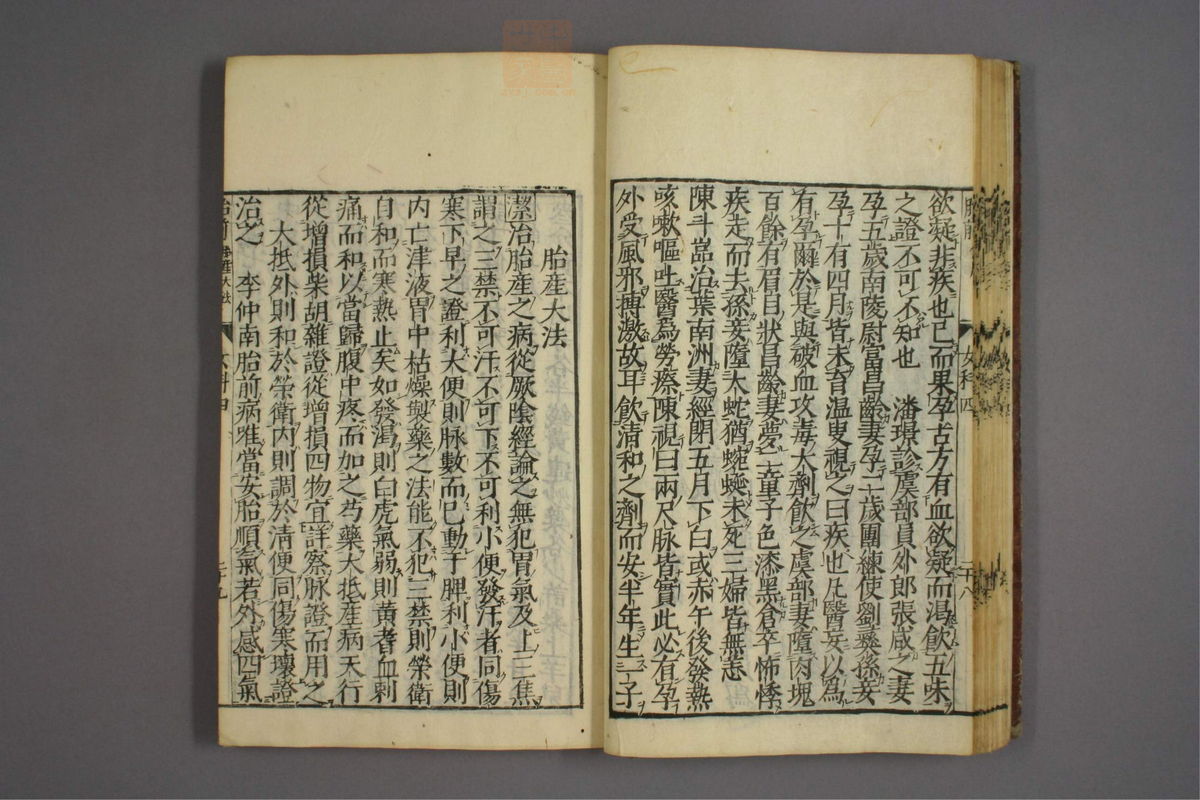 欲疑非疾也已而果孕古方有血欲疑而渴飲五味
之證不可不知也　潘璟診虞部員外郎張咸之妻
孕五歲南陵尉富昌齡妻孕二歲團練使劉彝孫妾
孕十有四月皆未育温叟視之曰疾也凡醫妄以為
有孕爾於是與破血攻毒大劑飲之虞部妻墮肉塊
百餘有眉目狀昌齡妻夢二童子色漆黑倉卒怖悸
疾走而去孫妾墮大蛇猶蜿蜒未死三婦皆無恙
陳斗嵓治葉南洲妻經閉五月下白或赤午後發熱
咳嗽嘔吐醫為勞瘵陳視曰兩尺脉皆實此必有孕
外受風邪搏激故耳飲清和之劑而安半年生一子
胎前
女科四
二十八
胎產大法
潔治胎產之病從厥陰經論之無犯胃氣及上三焦
謂之三禁不可汗不可下不可利小便發汗者同傷
寒下早之證利大便則脉數而已動于脾利小便則
内亡津液胃中枯燥製藥之法能不犯三禁則榮衛
自和而寒熱止矣如發渴則白虎氣弱則黄耆血刺
痛而和以當歸腹中疼而加之芍藥大抵産病天行
從增損柴胡雜證從增損四物宜詳察脉證而用之
大抵外則和於榮衛内則調於清便同傷寒壞證
治之　李仲南胎前病唯當安胎順氣若外感四氣
胎前　胎產大法
女科四
二十九